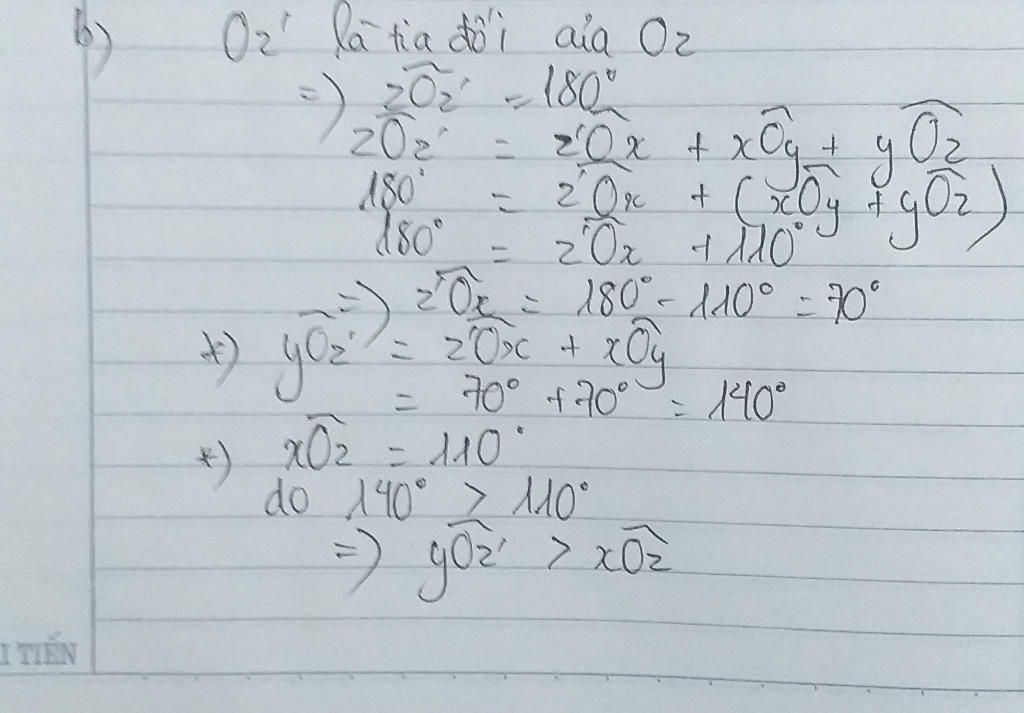 b) Oz' là tia đối của Oz
=) zÔz' = 180°
zÔz' = z'Ôx + xÔy + yÔz
180° = z'Ôx + (xÔy + yÔz)
180° = z'Ôx + 110°
=) z'Ôx = 180° - 110° = 70°
*) yÔz' = z'Ôx + xÔy
= 70° + 70° = 140°
*) xÔz = 110°
do 140° > 110°
=) yÔz' > xÔz
I TIẾN